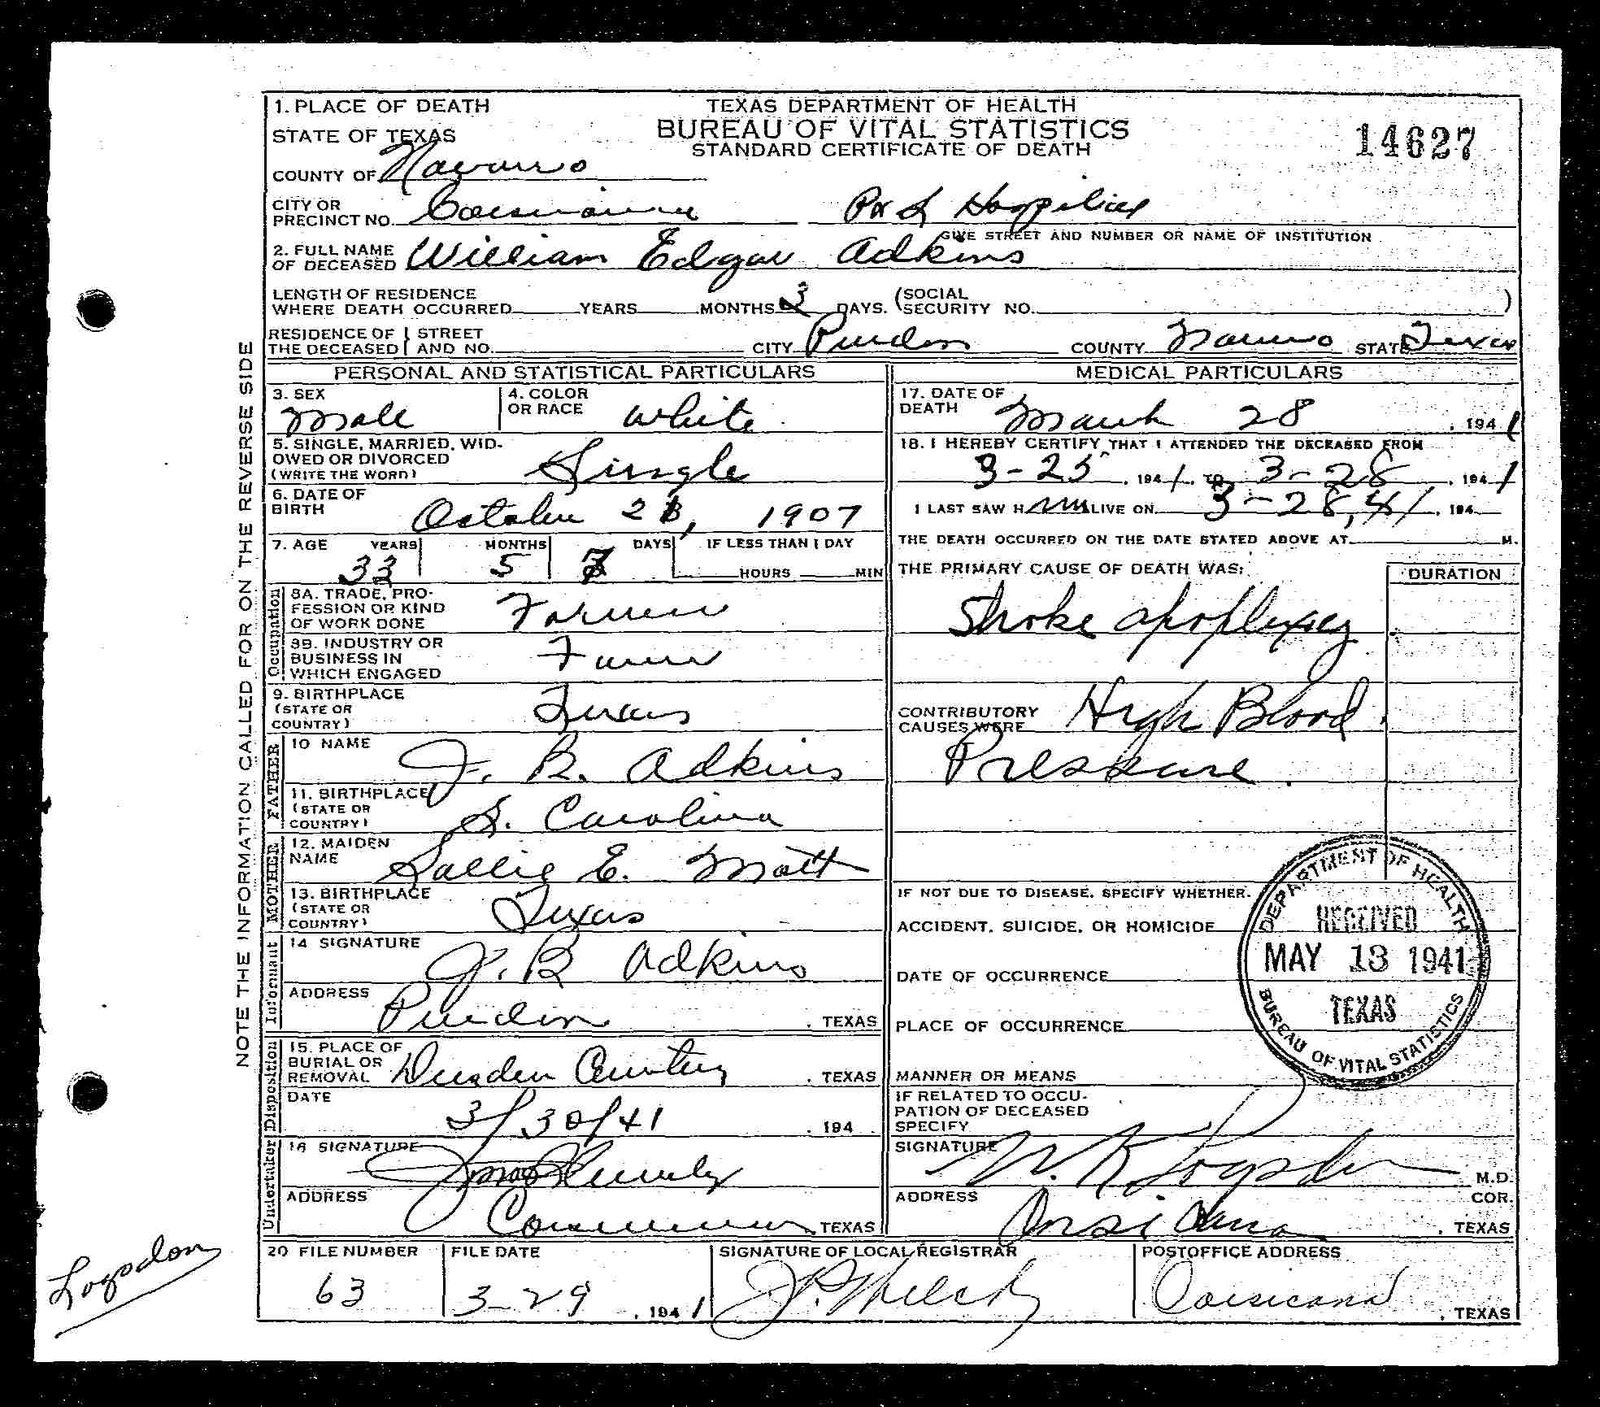 1. PLACE OF DEATH
STATE OF TEXAS
COUNTY OF Navarro
TEXAS DEPARTMENT OF HEALTH
BUREAU OF VITAL STATISTICS
STANDARD CERTIFICATE OF DEATH
14627
CITY OR PRECINCT NO. Corsicana P & S Hospital
GIVE STREET AND NUMBER OR NAME OF INSTITUTION
2. FULL NAME OF DECEASED William Edgar Adkins
LENGTH OF RESIDENCE WHERE DEATH OCCURRED YEARS MONTHS 3 DAYS. (SOCIAL SECURITY NO. )
RESIDENCE OF THE DECEASED STREET AND NO. CITY Purdon COUNTY Navarro STATE Texas
NOTE THE INFORMATION CALLED FOR ON THE REVERSE SIDE
PERSONAL AND STATISTICAL PARTICULARS
3. SEX Male
4. COLOR OR RACE White
5. SINGLE, MARRIED, WIDOWED OR DIVORCED (WRITE THE WORD) Single
6. DATE OF BIRTH October 21, 1907
7. AGE YEARS 33 MONTHS 5 DAYS 7 IF LESS THAN 1 DAY HOURS MIN
Occupation
8A. TRADE, PROFESSION OR KIND OF WORK DONE Farmer
8B. INDUSTRY OR BUSINESS IN WHICH ENGAGED Farm
9. BIRTHPLACE (STATE OR COUNTRY) Texas
FATHER
10 NAME J. B. Adkins
11. BIRTHPLACE (STATE OR COUNTRY) S. Carolina
MOTHER
12. MAIDEN NAME Sallie E. Matt
13. BIRTHPLACE (STATE OR COUNTRY) Texas
Informant
14 SIGNATURE J. B Adkins
ADDRESS Purdon, TEXAS
Disposition
15. PLACE OF BURIAL OR REMOVAL Dresden Cemetery, TEXAS
DATE 3/30/41, 194
Undertaker
16 SIGNATURE
ADDRESS Corsicana TEXAS
MEDICAL PARTICULARS
17. DATE OF DEATH March 28, 1941
18. I HEREBY CERTIFY THAT I ATTENDED THE DECEASED FROM
3-25, 1941, TO 3-28, 1941
I LAST SAW H im ALIVE ON 3-28, 41, 194
THE DEATH OCCURRED ON THE DATE STATED ABOVE AT M.
THE PRIMARY CAUSE OF DEATH WAS: DURATION
Stroke apoplexy
CONTRIBUTORY CAUSES WERE High Blood
Pressure.
IF NOT DUE TO DISEASE, SPECIFY WHETHER:
ACCIDENT, SUICIDE, OR HOMICIDE
DATE OF OCCURRENCE
PLACE OF OCCURRENCE
MANNER OR MEANS
IF RELATED TO OCCUPATION OF DECEASED SPECIFY
DEPARTMENT OF HEALTH
RECEIVED
MAY 13 1941
TEXAS
BUREAU OF VITAL STATISTICS
SIGNATURE W. K Logsdon M.D. COR.
ADDRESS Corsicana, TEXAS
20 FILE NUMBER 63
FILE DATE 3-29, 1941
SIGNATURE OF LOCAL REGISTRAR
POSTOFFICE ADDRESS Corsicana, TEXAS
Logsdon